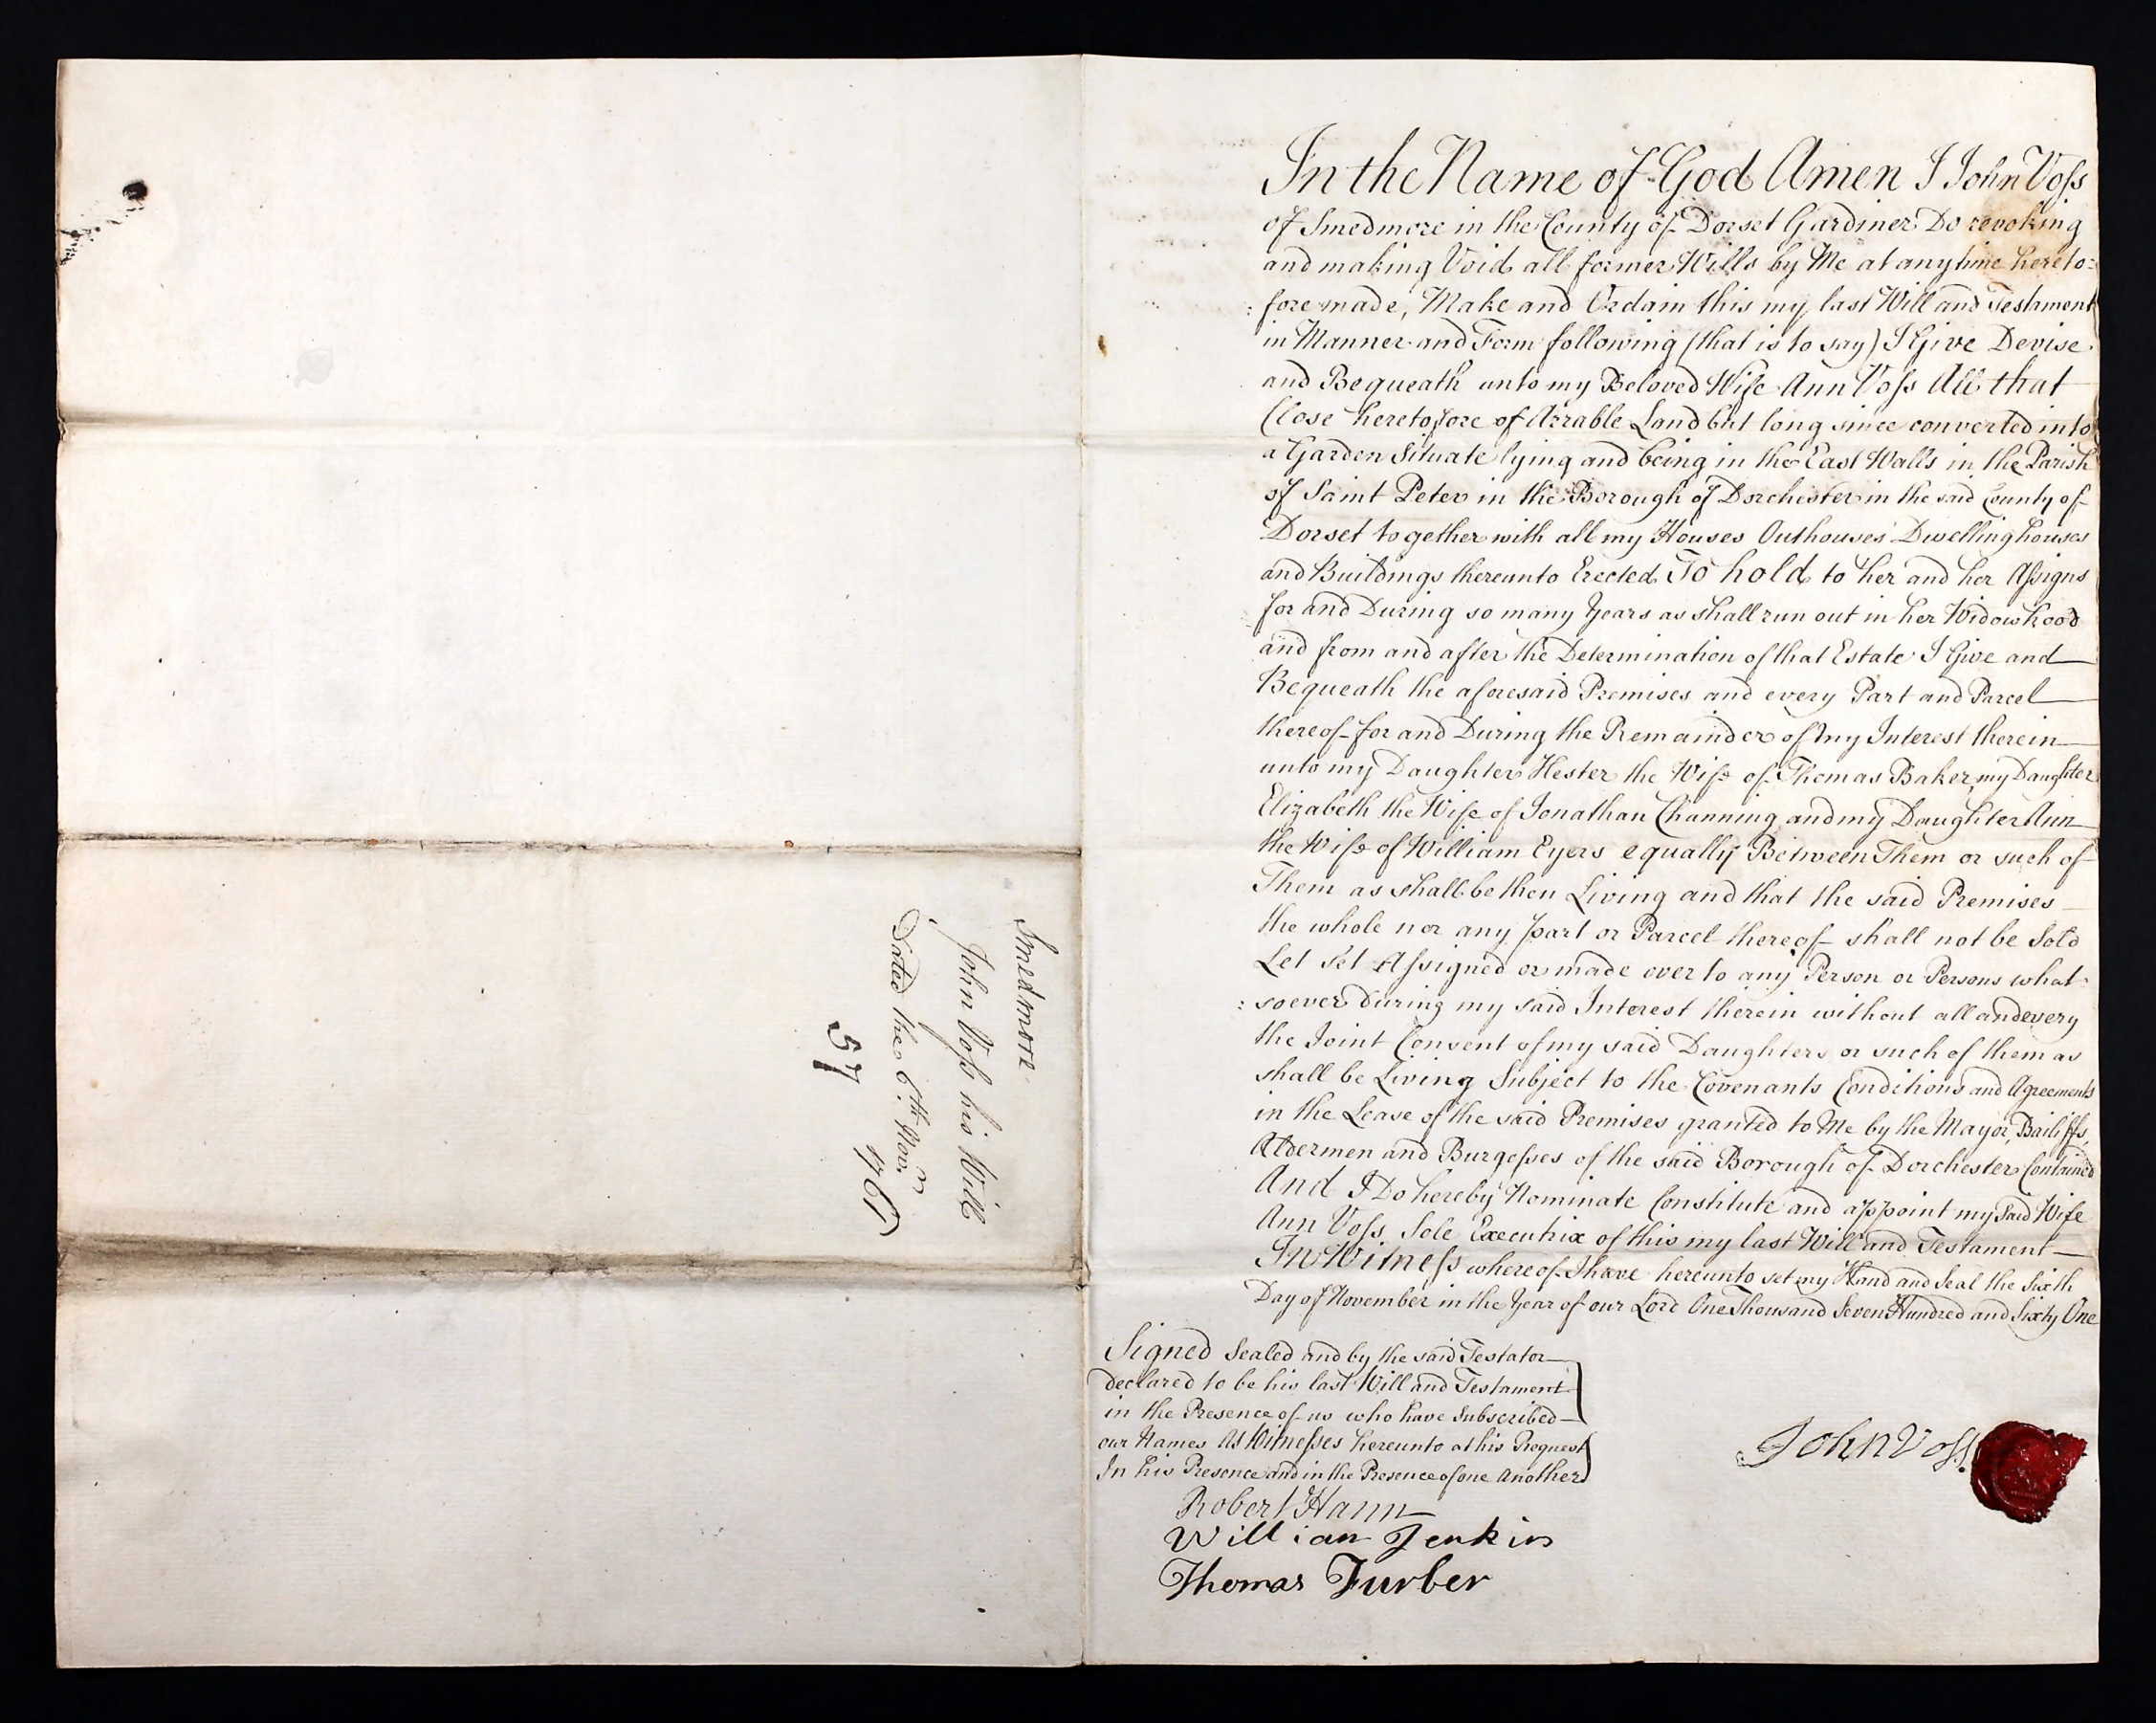 In the Name of God Amen I John Voſs
of Smedmore in the County of Dorset Gardiner Do revoking
and making Void all former Wills by Me at any time hereto=
:fore made, Make and Ordain this my last Will and Testament
in Manner and Form following (that is to say) I Give Devise
and Bequeath unto my Beloved Wife Ann Voſs All that
Close heretofore of Arrable Land but long since converted into
a Garden Situate lying and being in the East Walls in the Parish
of Saint Peter in the Borough of Dorchester in the said County of
Dorset together with all my Houses Outhouses Dwellinghouses
and Buildings thereunto Erected To hold to her and her Aſsigns
for and During so many Years as shall run out in her Widowhood
and from and after the Determination of that Estate I Give and
Bequeath the aforesaid Premises and every Part and Parcel
thereof for and During the Remainder of my Interest therein
unto my Daughter Hester the Wife of Thomas Baker, my Daughter
Elizabeth the Wife of Jonathan Channing and my Daughter Ann
the Wife of William Eyers equally Between Them or such of
Them as shall be then Living and that the said Premises
the whole nor any part or Parcel thereof shall not be Sold
Let Set Aſsigned or made over to any Person or Persons what=
:soever During my said Interest therein without all and every
the Joint Consent of my said Daughters or such of them as
shall be Living Subject to the Covenants Conditions and Agreements
in the Lease of the said Premises granted to Me by the Mayor, Bailiffs,
Aldermen and Burgeſses of the said Borough of Dorchester Contained
And I Do hereby Nominate Constitute and appoint my said Wife
Ann Voſs Sole Executrix of this my last Will and Testament
In Witneſs whereof I have hereunto set my Hand and Seal the Sixth
Day of November in the Year of our Lord One Thousand Seven Hundred and Sixty One
Signed Sealed and by the said Testator
Declared to be his last Will and Testament
in the Presence of us who have Subscribed
our Names As Witneſses hereunto at his Request
In his Presence and in the Presence of one Another
John Voſs
Robert Hann
William Jenkins
Thomas Furber
Smedmore
John Voſs his Will
Dated the 6th Novr
1761
57